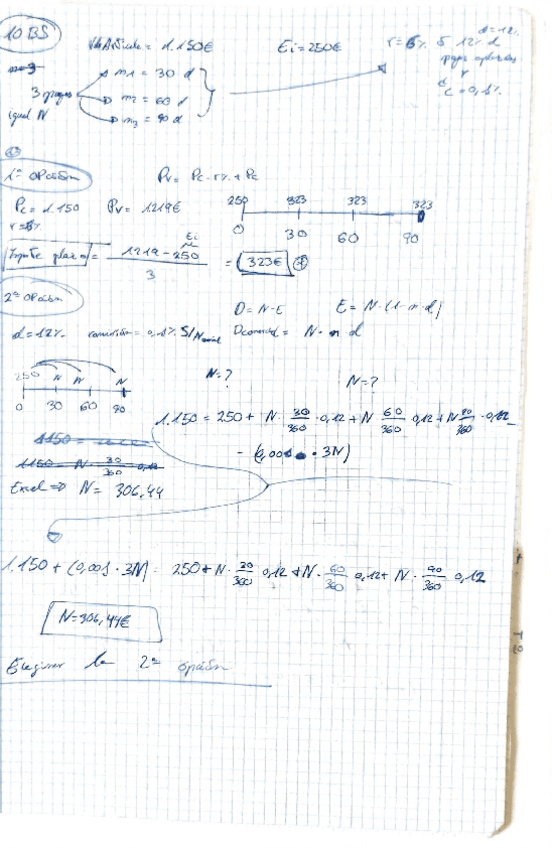 10 BS
Vb Artículo = 1.150€ Ei = 250€ r = 6% ó 12% d
m1 = 30 d
3 pagos m2 = 60 d
igual N m3 = 90 d
1ª Opción Pv = Pc · r% + Pc
Pc = 1.150 Pv = 1219€ 250 323 323 323
r = 6% 0 30 60 90
Importe plazo = 1219 - 250 / 3 = 323€
Ei
2ª Opción D = N-E E = N·(1-n·d)
d = 12% comisión = 0,1% S/Nominal Dcomercial = N · n · d
250 N N N N=? N=?
0 30 60 90
1.150 = 250 + N 30/360 · 0,12 + N 60/360 · 0,12 + N 90/360 · 0,12 -
- (0,001 · 3N)
1150 =
1150 = N · 30/360 · 0,12
Excel ⇒ N = 306,44
1.150 + (0,001 · 3N) = 250 + N · 30/360 · 0,12 + N · 60/360 · 0,12 + N · 90/360 · 0,12
N = 306,44€
la 2ª opción